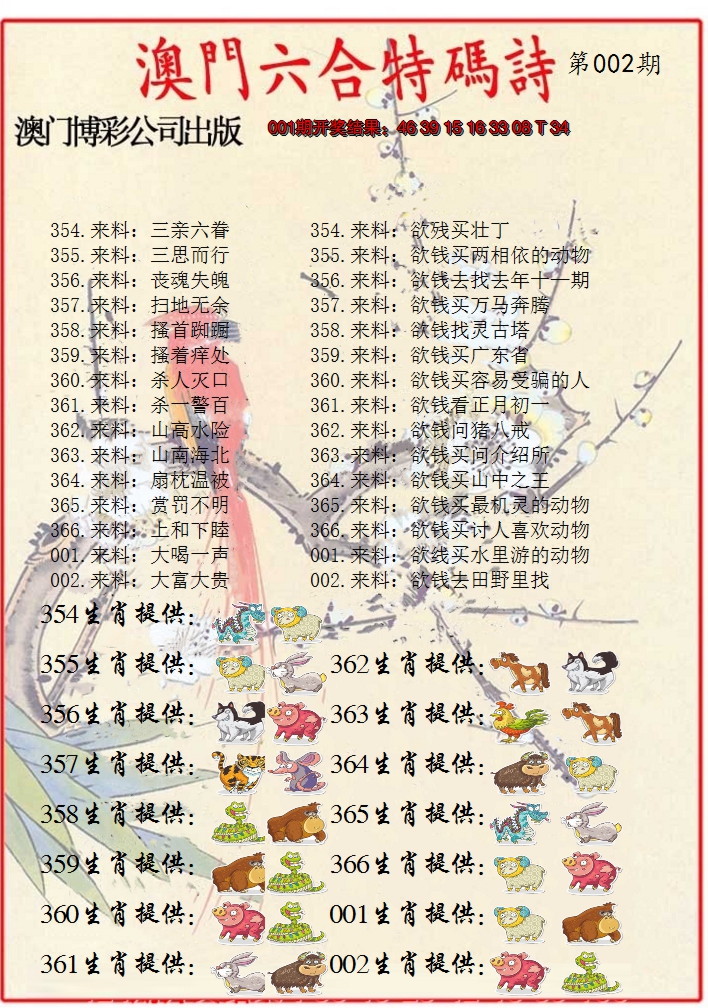 澳門六合特碼詩 第002期
澳门博彩公司出版 001期开奖结果：46 39 15 16 33 08 T 34
354.来料：三亲六眷 354.来料：欲残买壮丁
355.来料：三思而行 355.来料：欲钱买两相依的动物
356.来料：丧魂失魄 356.来料：欲钱去找去年十一期
357.来料：扫地无余 357.来料：欲钱买万马奔腾
358.来料：搔首踟蹰 358.来料：欲钱找灵古塔
359.来料：搔着痒处 359.来料：欲钱买广东省
360.来料：杀人灭口 360.来料：欲钱买容易受骗的人
361.来料：杀一警百 361.来料：欲钱看正月初一
362.来料：山高水险 362.来料：欲钱问猪八戒
363.来料：山南海北 363.来料：欲钱买问介绍所
364.来料：扇枕温被 364.来料：欲钱买山中之王
365.来料：赏罚不明 365.来料：欲钱买最机灵的动物
366.来料：上和下睦 366.来料：欲钱买讨人喜欢动物
001.来料：大喝一声 001.来料：欲线买水里游的动物
002.来料：大富大贵 002.来料：欲钱去田野里找
354生肖提供：
355生肖提供： 362生肖提供：
356生肖提供： 363生肖提供：
357生肖提供： 364生肖提供：
358生肖提供： 365生肖提供：
359生肖提供： 366生肖提供：
360生肖提供： 001生肖提供：
361生肖提供： 002生肖提供：